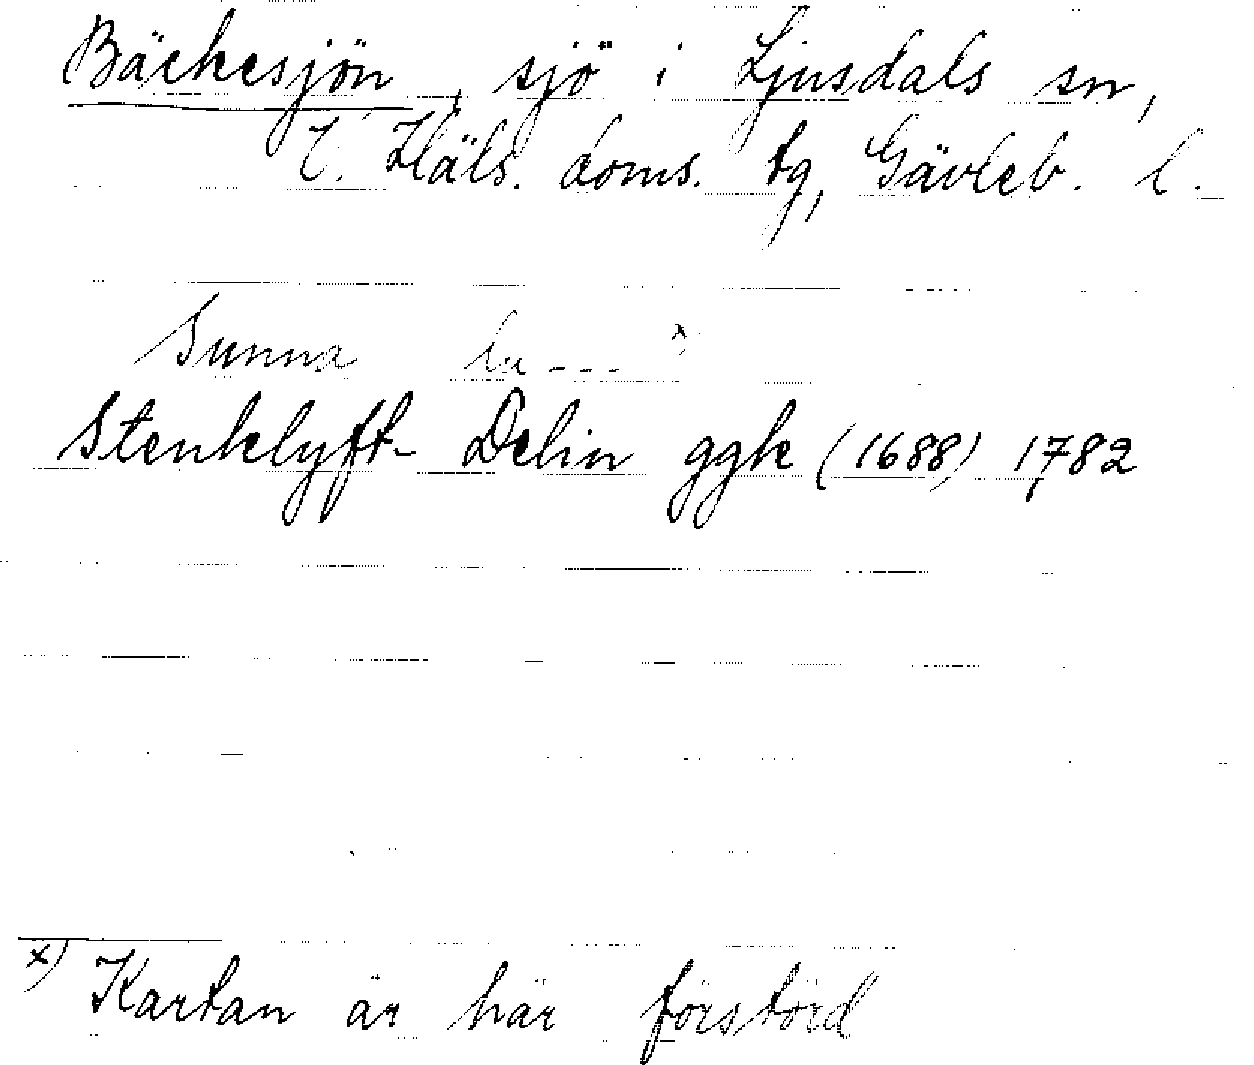 Bäckesjön, sjö i Ljusdals sn,
V. Häls. doms. tg, Gävleb. l.
Sunna Lu --- x)
Stenklyft- Delin ggk (1688) 1782
x) Kartan är här förstörd